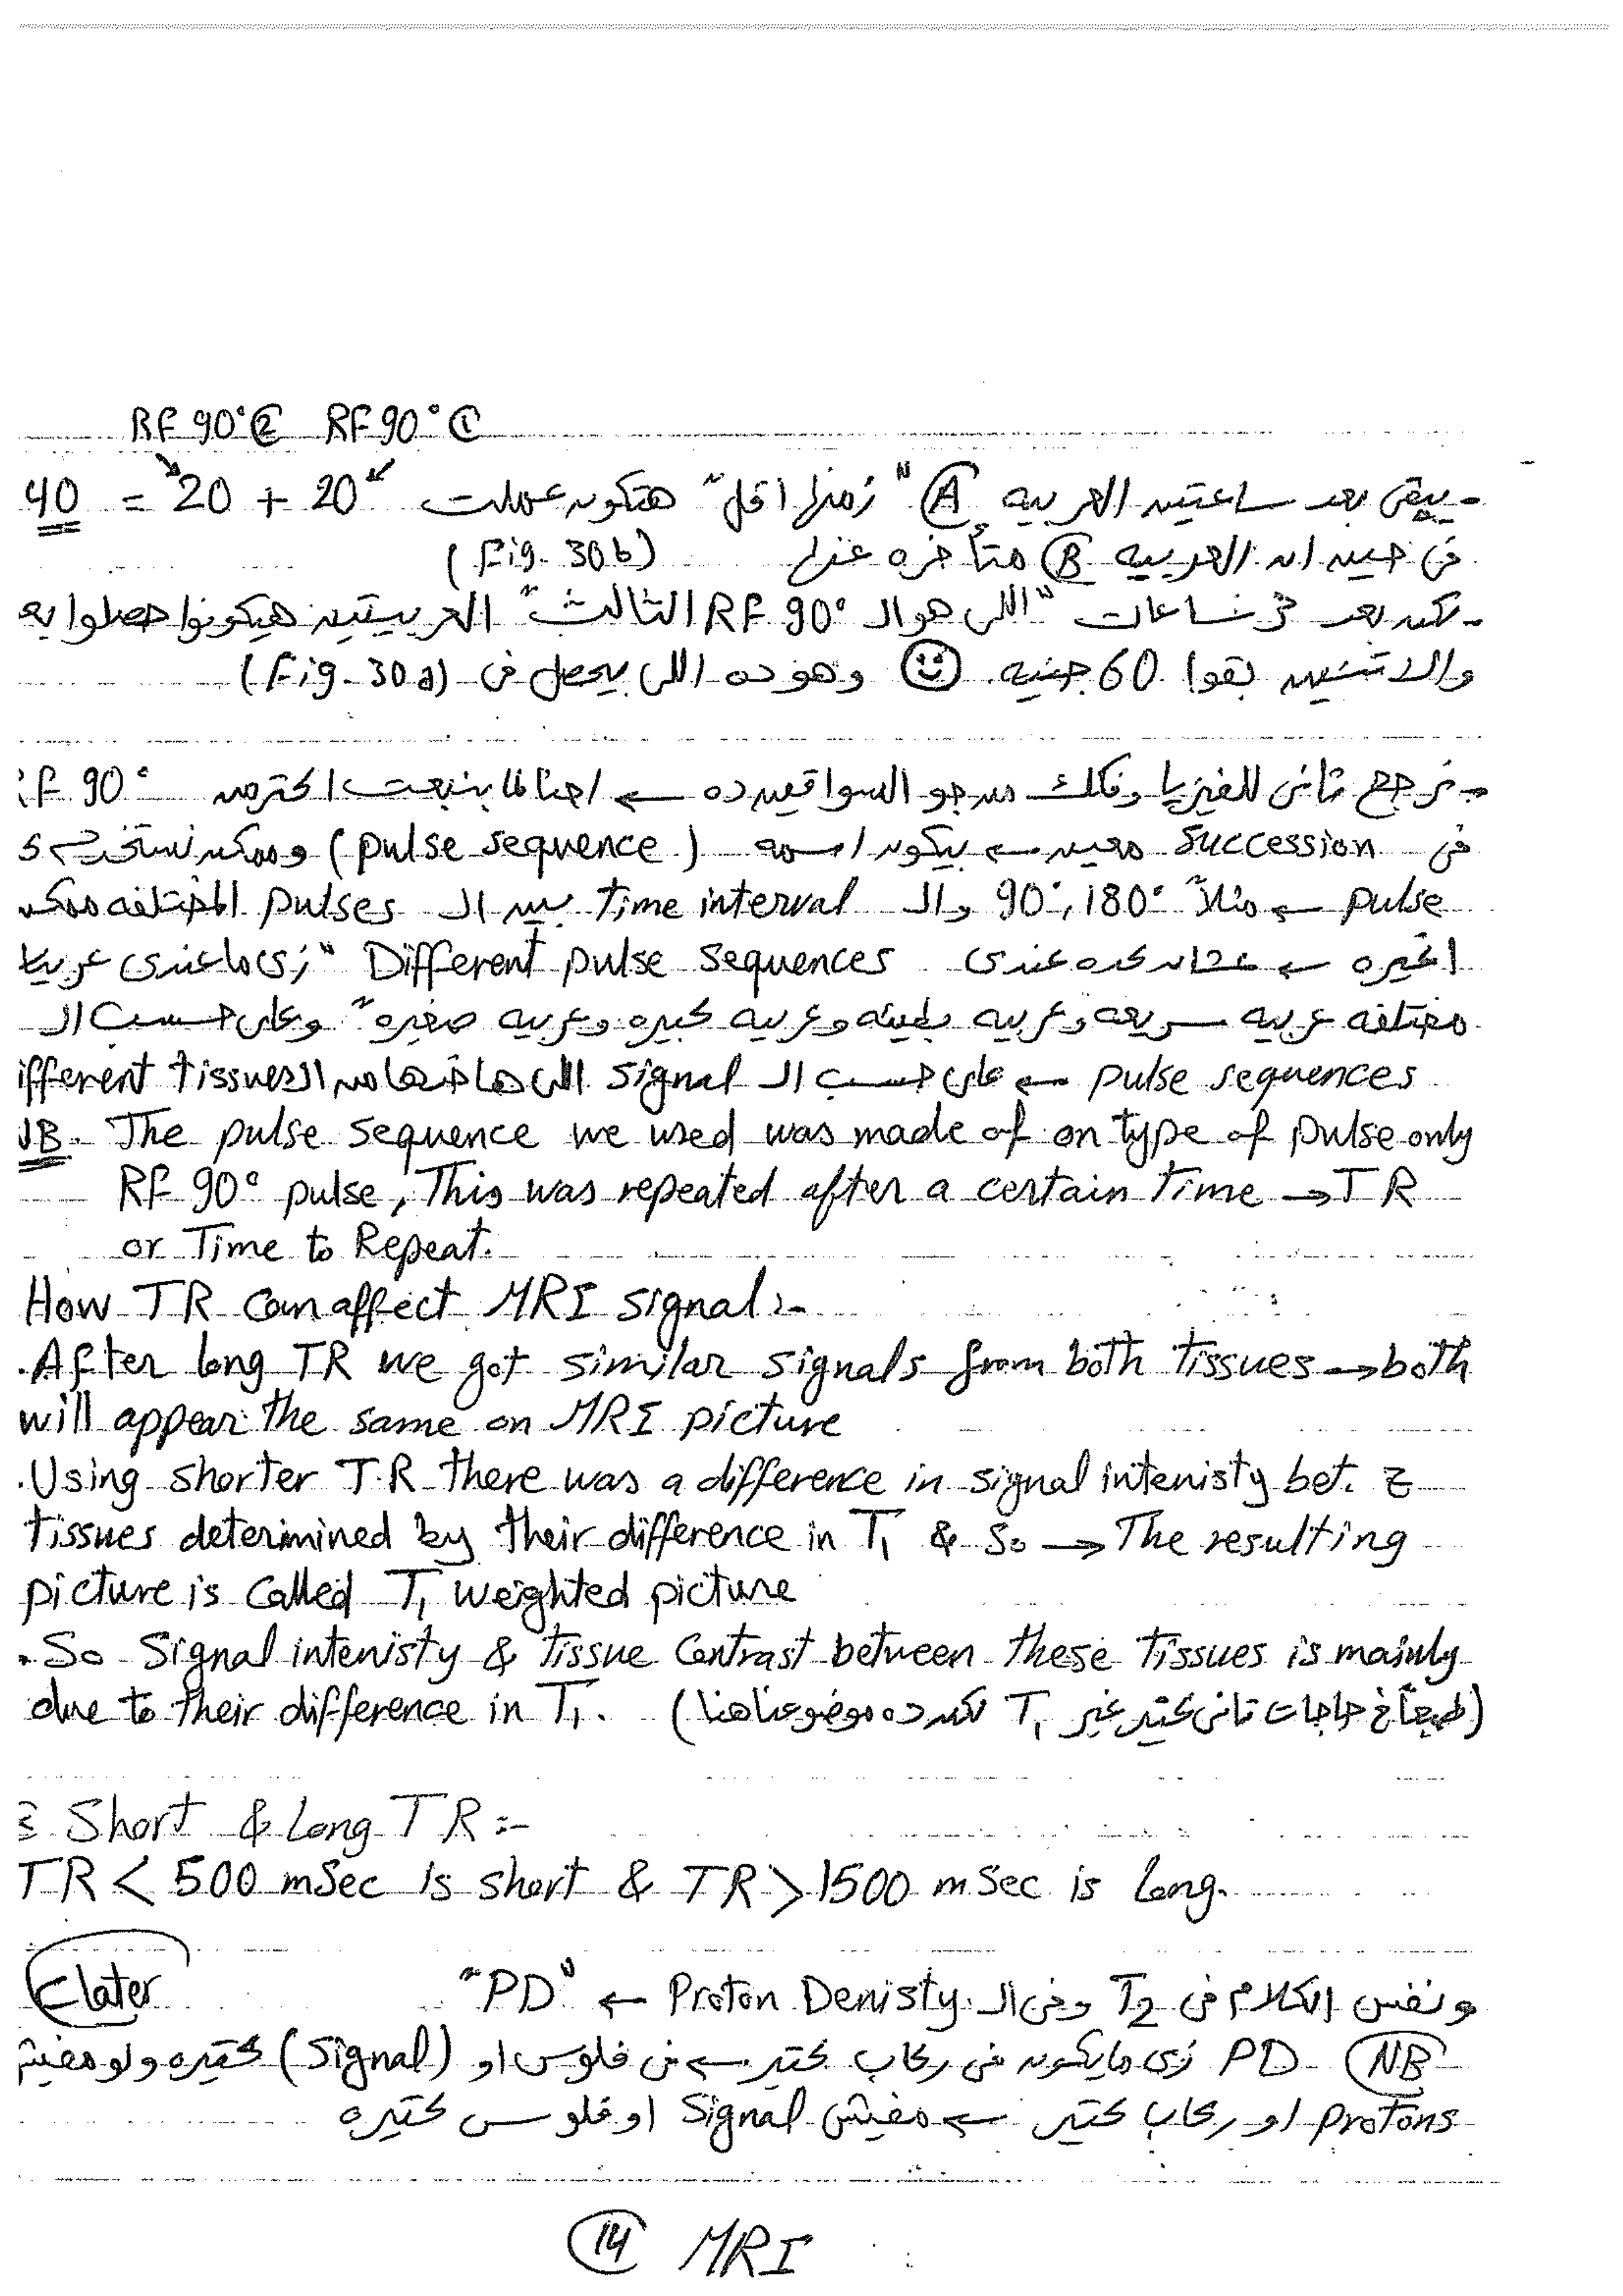 RF 90° ② RF 90° ①
- يبقى بعد ساعتين العربيه Ⓐ "زمنها اقل" هتكون عملت 20 + 20 = 40
فى حين ان العربيه Ⓑ متأخره عنها (Fig. 30b)
- لكن بعد 3 ساعات "اللى هو ال RF 90° الثالث" العربيتين هيكونوا حصلوا بعض
والاتنين بقوا 60 جنيه ☺ وهو ده اللى بيحصل فى (Fig. 30a)
نرجع تانى للفيزيا وفكك من جو السواقين ده ← احنا لما بنبعت اكتر من RF 90°
فى succession معين ← بيكون اسمه (pulse sequence) وممكن نستخدم
pulse ← مثلاً 90°, 180° وال Time interval بين ال pulses المختلفه ممكن
اغيره ← عشان كده عندى Different pulse sequences "زى ما عندى عربيات
مختلفه عربيه سريعه وعربيه بطيئه وعربيه كبيره وعربيه صغيره" وعلى حسب ال
pulse sequences ← على حسب ال signal اللى هاخدها من ال different tissues
NB. The pulse sequence we used was made of on type of pulse only
RF 90° pulse, This was repeated after a certain time → TR
or Time to Repeat.
How TR can affect MRI signal :-
. After long TR we got similar signals from both tissues → both
will appear the same on MRI picture
. Using shorter TR there was a difference in signal intenisty bet.
tissues deterimined by their difference in T1 & So → The resulting
picture is called T1 weighted picture
. So Signal intenisty & tissue contrast between these tissues is mainly
due to their difference in T1. (طبعاً فى حاجات تانى كتير غير T1 لكن ده موضوعنا هنا)
Short & Long TR :-
TR < 500 mSec is short & TR > 1500 mSec is long.
ونفس الكلام فى T2 وفى ال Proton Denisty ← "PD" later
NB PD زى مايكون فى ركاب كتير ← فى فلوس او (signal) كتيره ولو مفيش
protons او ركاب كتير ← مفيش signal او فلوس كتيره
⑭ MRI